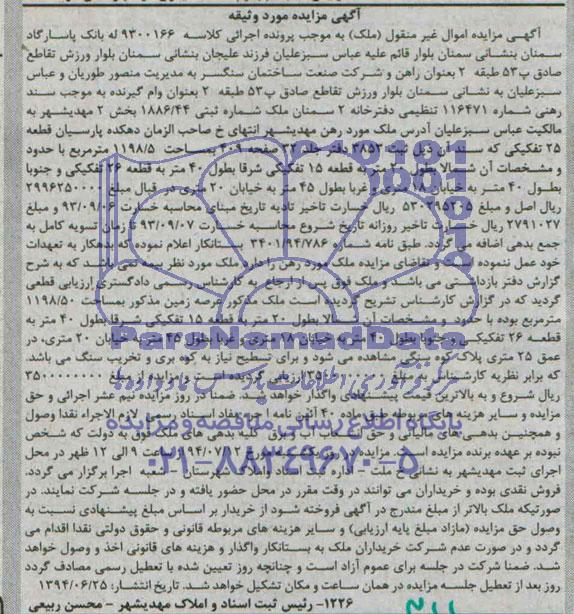 آگهی مزایده مورد وثیقه
آگهی مزایده اموال غیر منقول (ملک) به موجب پرونده اجرائی کلاسه ۹۳۰۰۱۶۶ له بانک پاسارگاد
سمنان بنشانی سمنان بلوار قائم علیه عباس سبزعلیان فرزند علیجان بنشانی سمنان بلوار ورزش تقاطع
صادق پ۵۳ طبقه ۲ بعنوان راهن و شرکت صنعت ساختمان سنگسر به مدیریت منصور طوریان و عباس
سبزعلیان به نشانی سمنان بلوار ورزش تقاطع صادق پ۵۳ طبقه ۲ بعنوان وام گیرنده به موجب سند
رهنی شماره ۱۱۶۴۷۱ تنظیمی دفترخانه ۲ سمنان ملک شماره ثبتی ۱۸۸۶/۴۴ بخش ۲ مهدیشهر به
مالکیت عباس سبزعلیان آدرس ملک مورد رهن مهدیشهر انتهای خ صاحب الزمان دهکده پارسیان قطعه
۲۵ تفکیکی که سند آن ذیل ثبت ۳۸۵۲ دفتر جلد ۲۲ صفحه ۴۰۹ بمساحت ۱۱۹۸/۵ مترمربع با حدود
و مشخصات آن شمالا بطول ۲۰ متر به قطعه ۱۵ تفکیکی شرقا بطول ۴۰ متر به قطعه ۲۶ تفکیکی و جنوبا
بطول ۴۰ متر به خیابان ۱۸ متری و غربا بطول ۴۵ متر به خیابان ۲۰ متری در قبال مبلغ ۲۹۹۶۲۵۰۰۰۰
ریال اصل و مبلغ ۵۳۰۲۹۵۲۰۵ ریال خسارت تاخیر تادیه تاریخ مبنای محاسبه خسارت ۹۳/۰۹/۰۶ و مبلغ
۲۷۹۱۰۲۷ ریال خسارت تاخیر روزانه تاریخ شروع محاسبه خسارت ۹۳/۰۹/۰۷ تا زمان تسویه کامل به
جمع بدهی اضافه می گردد. طبق نامه شماره ۳۴۰۱/۹۴/۷۸۶ بستانکار اعلام نموده که بدهکار به تعهدات
خود عمل ننموده است و تقاضای مزایده ملک مورد رهن را دارد ملک مورد نظر بیمه نمی باشد که به شرح
گزارش دفتر بازداشتی می باشد و ملک فوق پس از ارجاع به کارشناس رسمی دادگستری ارزیابی قطعی
گردید که در گزارش کارشناس تشریح گردیده است ملک مذکور عرصه زمین مذکور بمساحت ۱۱۹۸/۵۰
مترمربع بوده با حدود و مشخصات آن شمالا بطول ۲۰ متر به قطعه ۱۵ تفکیکی شرقا بطول ۴۰ متر به
قطعه ۲۶ تفکیکی و جنوبا بطول ۴۰ متر به خیابان ۱۸ متری و غربا بطول ۴۵ متر به خیابان ۲۰ متری، در
عمق ۲۵ متری پلاک کوه سنگی مشاهده می شود و برای تسطیح نیاز به کوه بری و تخریب سنگ می باشد.
که برابر نظریه کارشناس به مبلغ ارزیابی گردیده است و مزایده از مبلغ
ریال شروع و به بالاترین قیمت پیشنهادی واگذار خواهد شد. ضمنا در روز مزایده نیم عشر اجرائی و حق
مزایده و سایر هزینه های مربوطه طبق ماده ۴۰ آئین نامه اجرا مفاد اسناد رسمی لازم الاجراء نقدا وصول
و همچنین بدهی های مالیاتی و حق انشعاب آب و برق کلیه بدهی های ملک فوق به دولت که شخص
نبوده بر عهده برنده مزایده است. مزایده در روز یکشنبه مورخ ساعت ۹ الی ۱۲ ظهر در محل
اجرای ثبت مهدیشهر به نشانی خ ملت - اداره ثبت اسناد واملاک شهرستان شعبه اجرا برگزار می گردد.
فروش نقدی بوده و خریداران می توانند در وقت مقرر در محل حضور یافته و در جلسه شرکت نمایند. در
صورتیکه ملک بالاتر از مبلغ مندرج در آگهی فروخته شود از خریدار بر اساس مبلغ پیشنهادی نسبت به
وصول حق مزایده (مازاد مبلغ پایه ارزیابی) و سایر هزینه های مربوطه قانونی و حقوق دولتی نقدا اقدام می
گردد و در صورت عدم شرکت خریداران ملک به بستانکار واگذار و هزینه های قانونی اخذ و وصول خواهد
شد. ضمنا شرکت در جلسه برای عموم آزاد است و چنانچه روز تعیین شده با تعطیل رسمی مصادف گردد
روز بعد از تعطیل جلسه مزایده در همان ساعت و مکان تشکیل خواهد شد. تاریخ انتشار: ۱۳۹۴/۰۶/۲۵
۱۲۲۶- رئیس ثبت اسناد و املاک مهدیشهر - محسن ربیعی
ParsNamadData
مرکز فرآوری اطلاعات پارس نماد داده ها
پایگاه اطلاع رسانی مناقصه و مزایده
۰۲۱-۸۸۳۴۹۶۷۰-۵